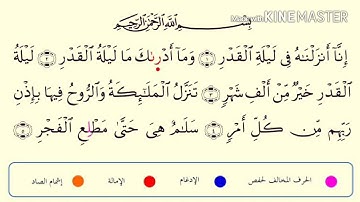 Made with
KINEMASTER
بِسْمِ ٱللَّهِ ٱلرَّحْمَٰنِ ٱلرَّحِيمِ
إِنَّآ أَنزَلْنَٰهُ فِى لَيْلَةِ ٱلْقَدْرِ ١ وَمَآ أَدْرىٰكَ مَا لَيْلَةُ ٱلْقَدْرِ ٢ لَيْلَةُ
ٱلْقَدْرِ خَيْرٌ مِّنْ أَلْفِ شَهْرٍ ٣ تَنَزَّلُ ٱلْمَلَٰٓئِكَةُ وَٱلرُّوحُ فِيهَا بِإِذْنِ
رَبِّهِم مِّن كُلِّ أَمْرٍ ٤ سَلَٰمٌ هِىَ حَتَّىٰ مَطْلِعِ ٱلْفَجْرِ ٥
الحرف المخالف لحفص
الإدغام
الإمالة
إشمام الصاد